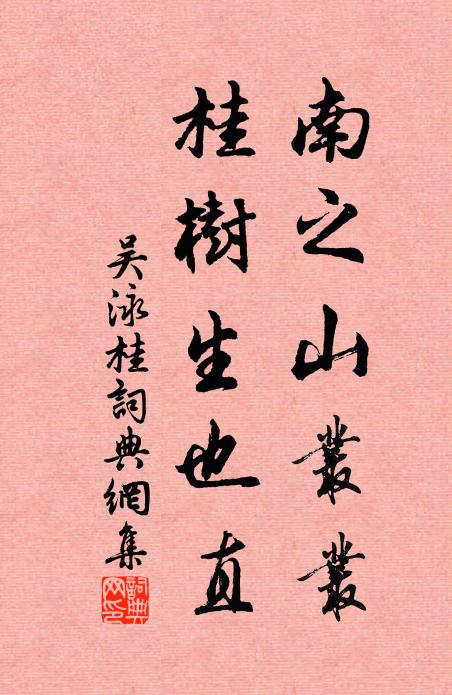 南之山叢叢
桂樹生也直
吴泳桂詞典網集
詞典網印